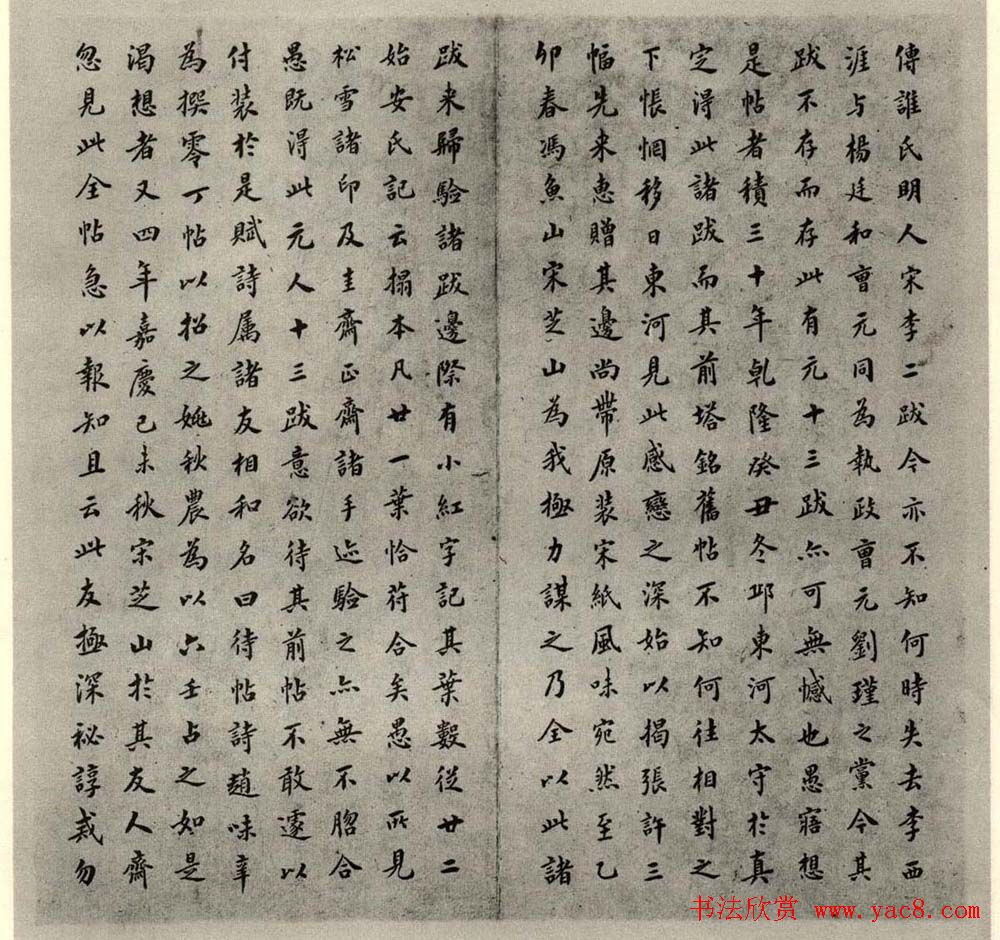 傳誰氏明人宋李二跋今亦不知何時失去李西
涯与楊廷和曹元同為執政曹元劉瑾之黨今其
跋不存而存此有元十三跋亦可無憾也愚寤想
是帖者積三十年乹隆癸丑冬邛東河太守於真
定得此諸跋而其前塔銘舊帖不知何往相對之
下悵惘移日東河見此感戀之深始以揭張許三
幅先来惠贈其邊尚帶原装宋紙風味宛然至乙
卯春馮魚山宋芝山為我極力謀之乃全以此諸
跋来歸驗諸跋邊際有小紅字記其葉數從廿二
始安氏記云搨本凡廿一葉恰符合矣愚以所見
松雪諸印及圭齋正齋諸手迹驗之亦無不脗合
愚既得此元人十三跋意欲待其前帖不敢遽以
付装於是賦詩属諸友相和名曰待帖詩趙味辛
為撰零丁帖以招之姚秋農為以六壬占之如是
渴想者又四年嘉慶己未秋宋芝山於其友人齋
忽見此全帖急以報知且云此友極深祕諄戒勿
书法欣赏 www.yac8.com